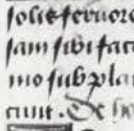 solis feruore
sam sibi fac
mo sub pla
ciunt. De h